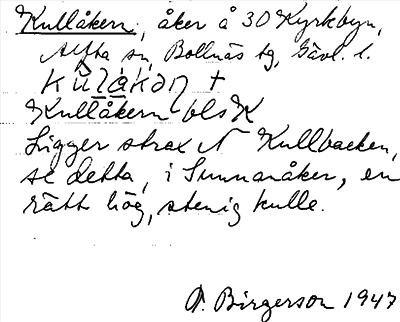 Kullåkern, åker å 30 Kyrkbyn,
Alfta sn, Bollnäs tg, Gävl. l.
kùlákən +
Kullåkern bls K
Ligger strax N Kullbacken,
se detta, i Sunnanåker, en
rätt hög, stenig kulle.
A. Birgerson 1947